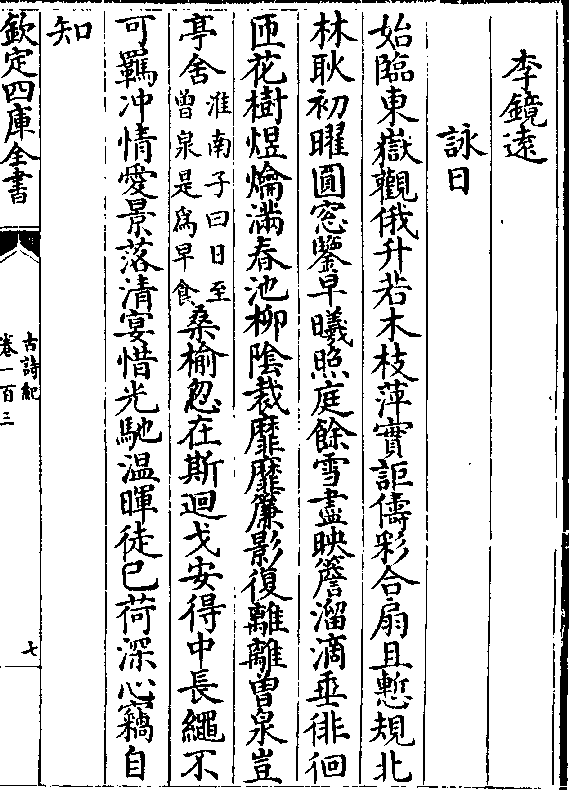 李鏡遠
詠日
始臨東嶽觀俄升若木枝萍實詎儔彩合扇且慙規北
林耿初曜圓窓鑒早曦照庭餘雪盡映簷溜滴垂徘徊
匝花樹煜爚滿春池柳陰裁靡靡簾影復離離曽泉豈
亭舍淮南子曰日至曽泉是爲早食桑榆忽在斯迴戈安得中長繩不
可羈冲情愛景落清宴惜光馳温暉徒已荷深心竊自
知
欽定四庫全書
古詩紀
卷一百三
七